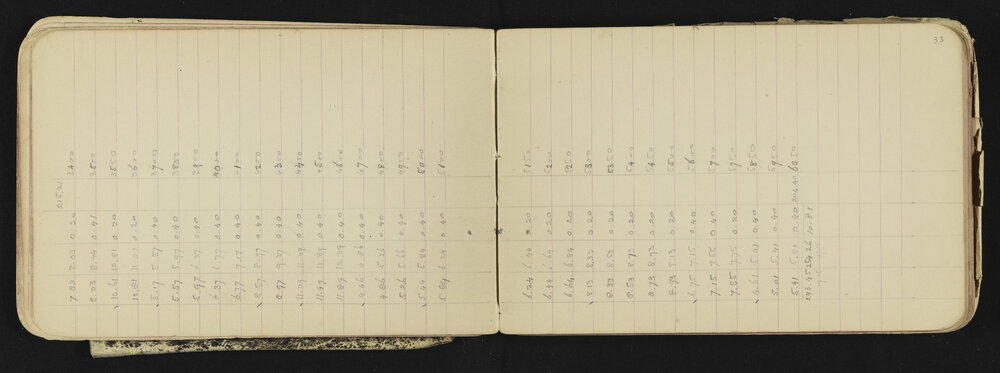 215.21
7.83 8.03 0.20 3400
8.03 8.44 0.41 3500
10.61 10.81 0.20 3550
10.81 11.01 0.20 3600
5.17 5.57 0.40 3700
5.57 5.97 0.40 3800
5.97 6.37 0.40 3900
6.37 6.77 0.40 4000
6.77 7.17 0.40 4100
8.57 8.97 0.40 4200
8.97 9.37 0.40 4300
11.09 11.49 0.40 4400
11.49 11.89 0.40 4500
11.89 12.29 0.40 4600
4.46 4.86 0.40 4700
4.86 5.26 0.40 4800
5.26 5.66 0.40 4900
5.44 5.84 0.40 5000
5.84 6.24 0.40 5100
33
6.24 6.44 0.20 5150
6.44 6.64 0.20 5200
6.64 6.84 0.20 5250
8.13 8.33 0.20 5300
8.33 8.53 0.20 5350
8.53 8.73 0.20 5400
8.73 8.93 0.20 5450
8.93 9.13 0.20 5500
6.75 7.15 0.40 5600
7.15 7.55 0.40 5700
7.55 7.75 0.20 5750
4.61 5.01 0.40 5850
5.01 5.41 0.40 5950
5.41 5.81 0.40 6050
243.45 254.26 10.81